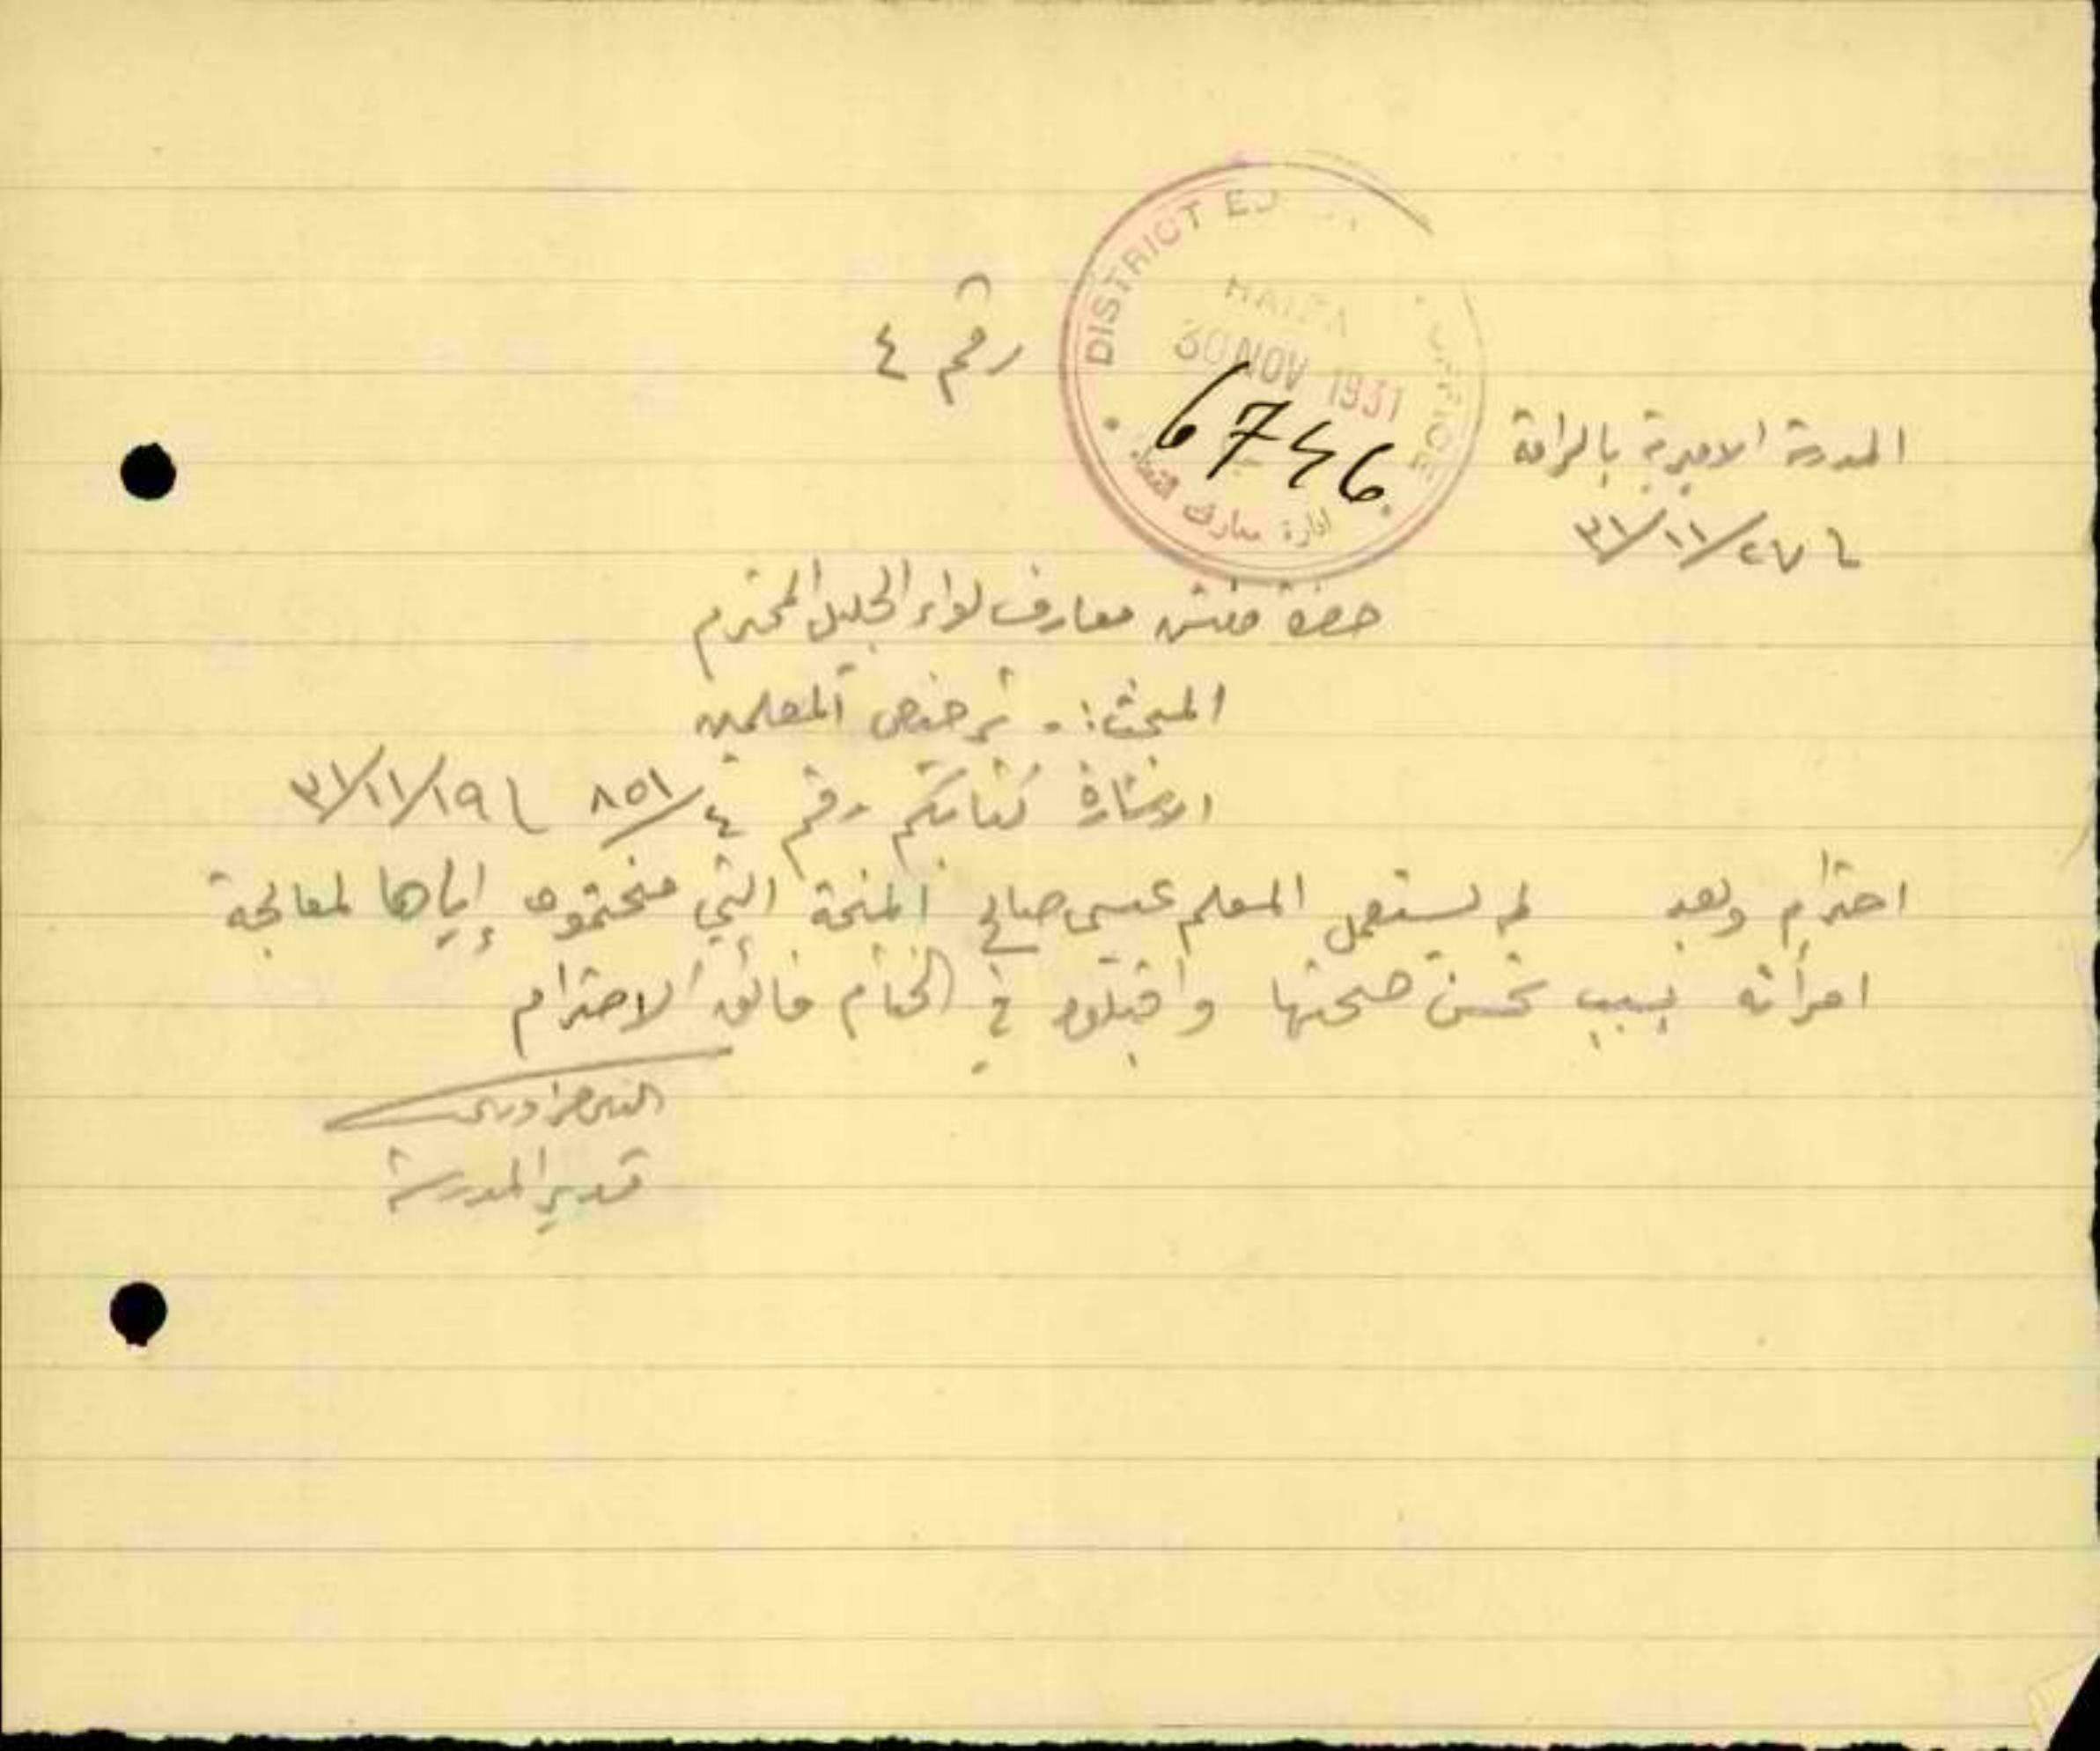 رقم ٤
DISTRICT ED
OFFICE
HAIFA
30 NOV 1931
6746
ادارة معارف
المدرسة الاميرية بالرامة
٢٧/١١/٣١
حضرة مفتش معارف لواء الجليل المحترم
المبحث :- ترخيص المعلمين
الاشارة كتابكم رقم ٤/٨٥١ ١٩/١١/٣١
احترام وبعد لم يستعمل المعلم عيسى صالح المنحة التي منحتموه إياها لمعالجة
امرأته بسبب تحسن صحتها واقبلوا في الختام فائق الاحترام
مدير المدرسة